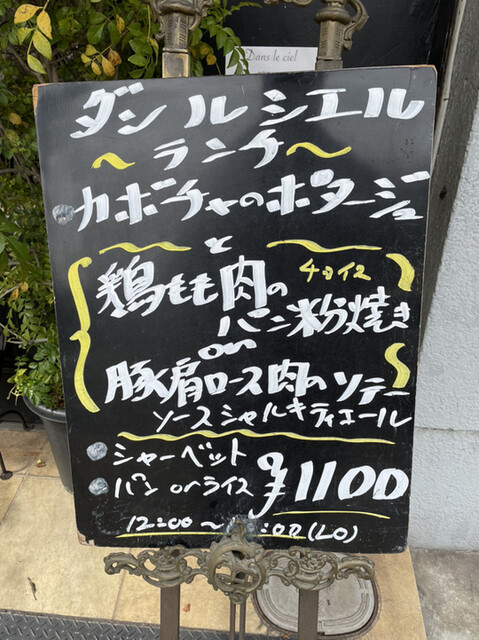 Dans le ciel
ダン ル シエル
～ランチ～
カボチャのポタージュ
と
チョイス
鶏もも肉の
パン粉焼き
or
豚肩ロース肉のソテー
ソースシャルキティエール
シャーベット
パン orライス
¥1100
12:00～ :00(LO)